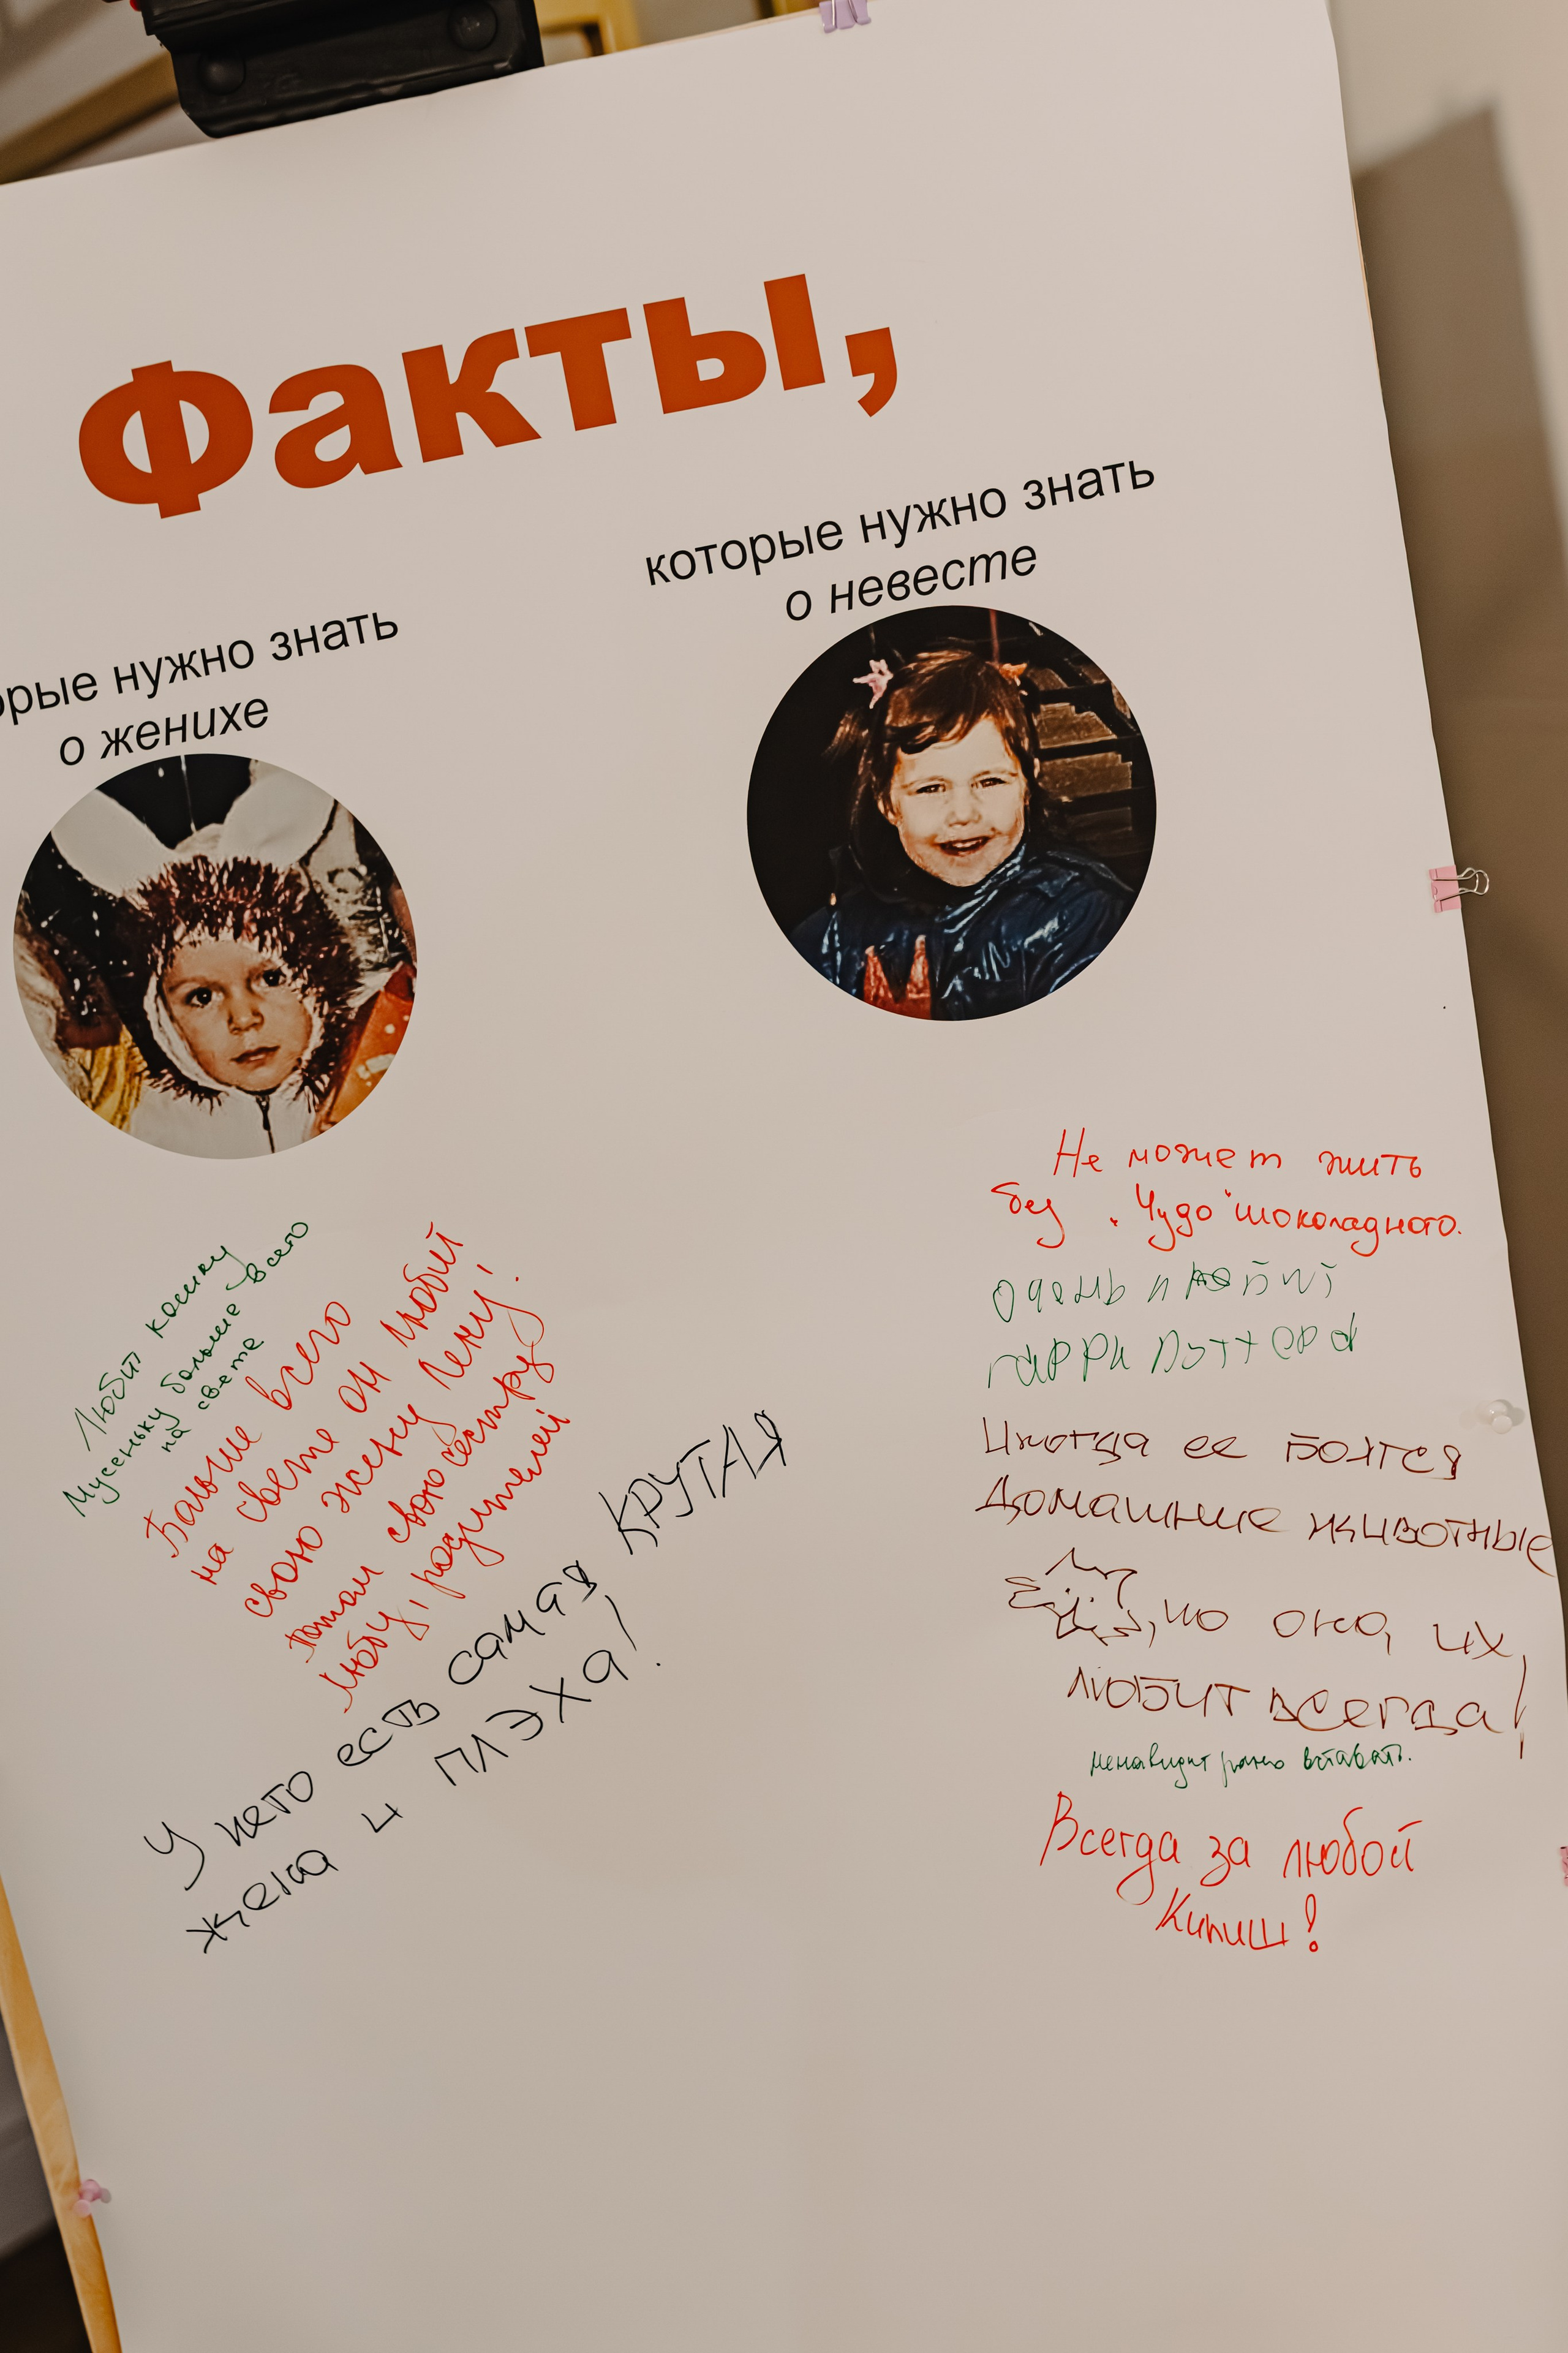 Факты,
орые нужно знать
о женихе
которые нужно знать
о невесте
Любит кошку
Мусеньку больше всего
на свете
Больше всего
на свете он любит
свою жену Лену!
потом свою сестру
Любу, родителей
У него есть самая КРУТАЯ
жена и ПЛЭХА!
Не может жить
без "Чудо" шоколадного.
Очень любит
гарри Поттера
Иногда ее боятся
Домашние животные
, но она их
любит всегда!
ненавидит рано вставать.
Всегда за любой
Кипиш!